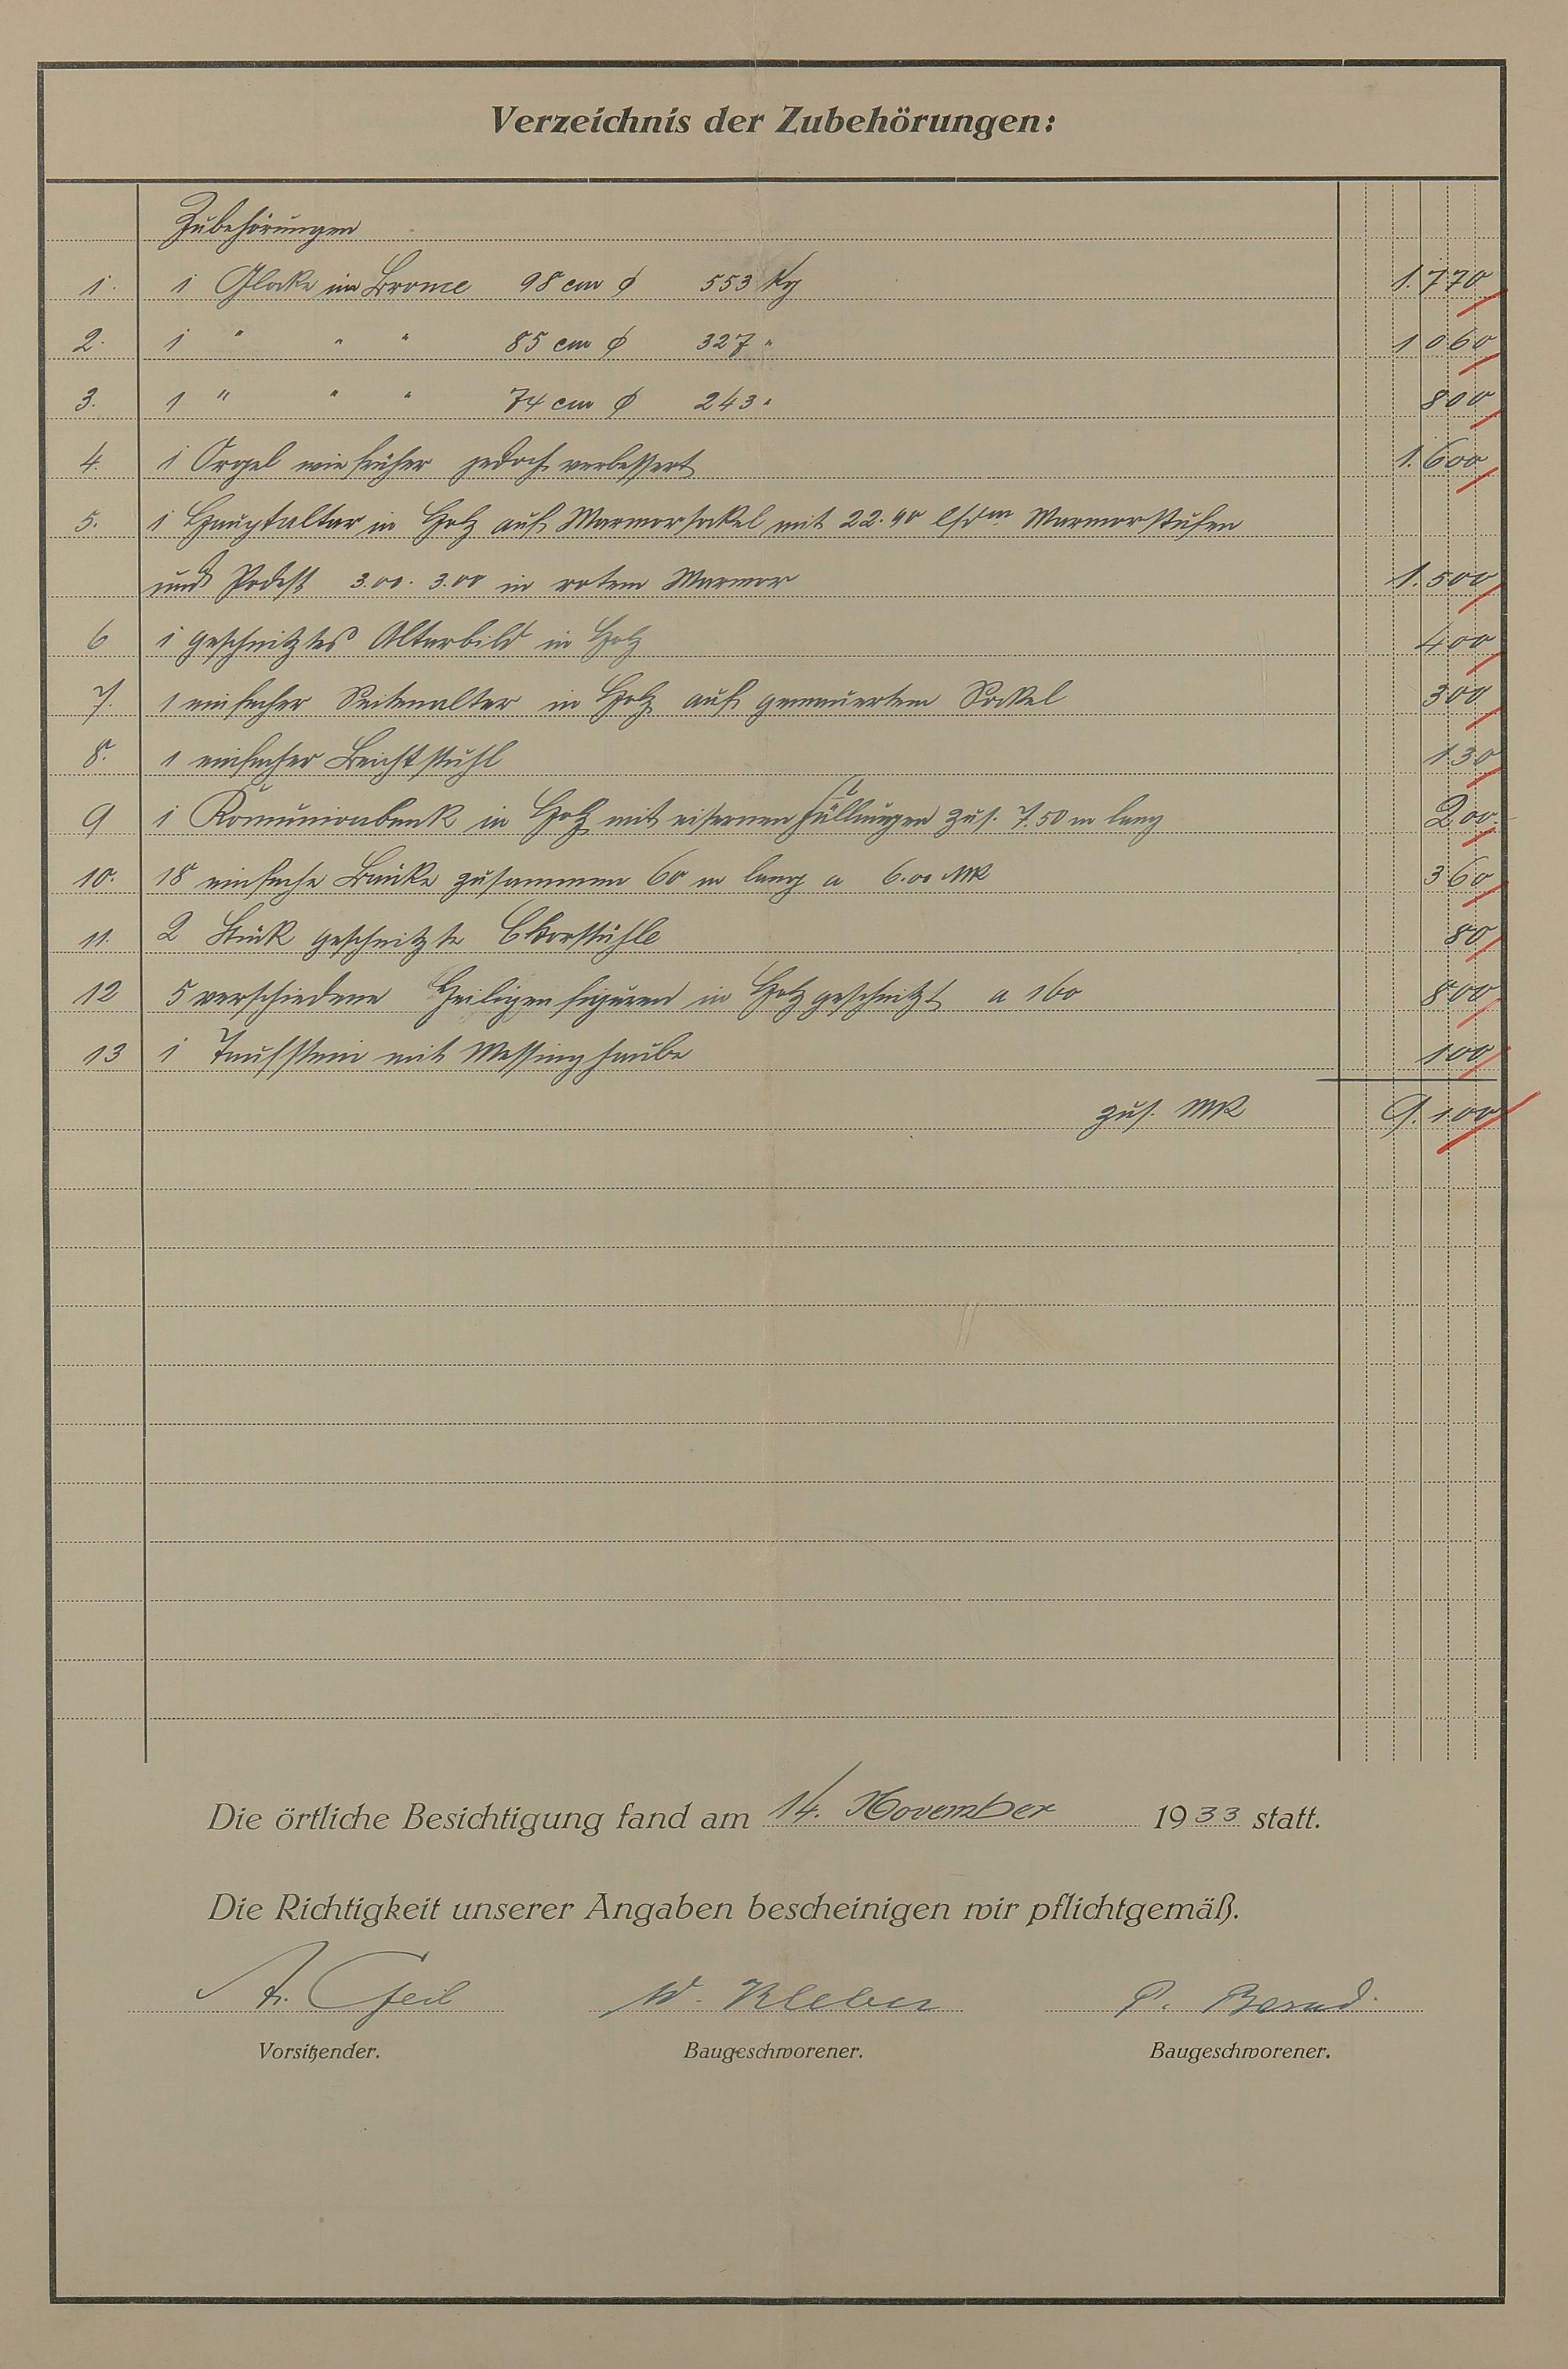 Verzeichnis der Zubehörungen:
Zubehörungen
1. 1 Glocke in Bronce 98 cm ϕ 553 Kg 1.770
2. 1 " " " 85 cm ϕ 327 " 1060
3. 1 " " " 74 cm ϕ 243 " 800
4. 1 Orgel wie früher jedoch verbessert 1.600
5. 1 Hauptaltar in Holz auf Marmorsockel mit 22.40 lfdm Marmorstufen
und Podest 3.00 . 3.00 in rotem Marmor 1.500
6 1 geschnitztes Altarbild in Holz 400
7. 1 einfacher Seitenaltar in Holz auf gemauertem Sockel 300
8. 1 einfacher Beichtstuhl 130
9 1 Komunionbank in Holz mit eisernen Füllungen zus. 7.50 m lang 200
10. 18 einfache Bänke zusammen 60 m lang a 6.00 MK 360
11. 2 Stück geschnitzte Chorstühle 80
12 5 verschiedene Heiligenfiguren in Holz geschnitzt a 160 800
13 1 Taufstein mit Messinghaube 100
zus. MK 9.100
Die örtliche Besichtigung fand am 14. November 1933 statt.
Die Richtigkeit unserer Angaben bescheinigen wir pflichtgemäß.
A. Geil W. Kleber P. Bernd.
Vorsitzender. Baugeschworener. Baugeschworener.